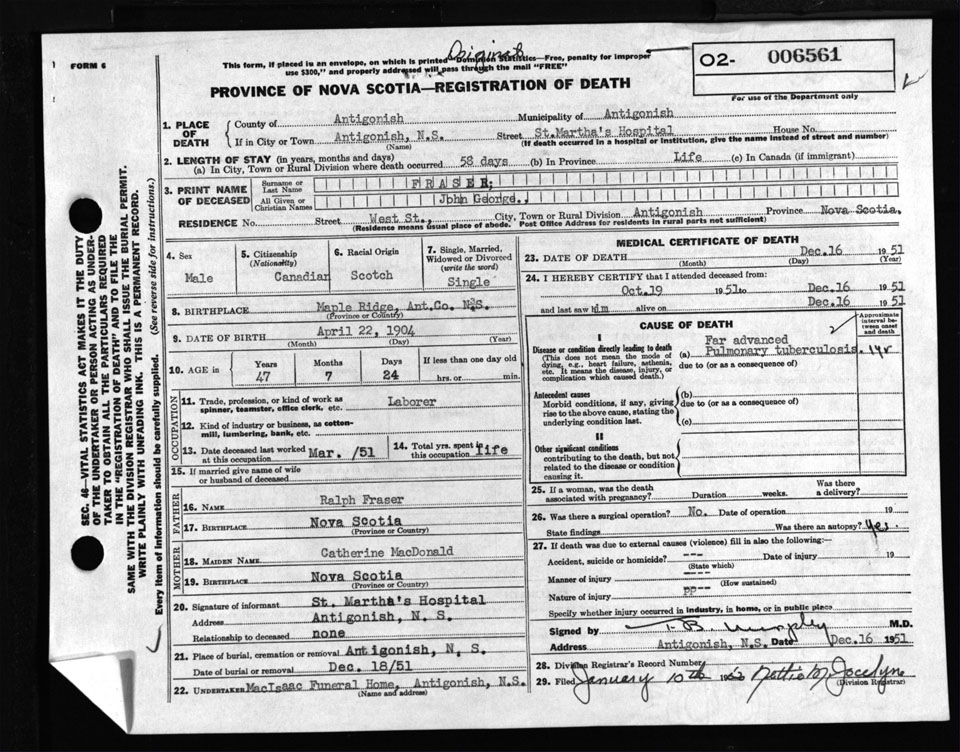 Original
FORM 6
This form, if placed in an envelope, on which is printed "Dominion Statistics—Free, penalty for improper
use $300," and properly addressed will pass through the mail "FREE"
02- 006561
For use of the Department only
PROVINCE OF NOVA SCOTIA—REGISTRATION OF DEATH
1. PLACE OF DEATH
County of Antigonish Municipality of Antigonish
If in City or Town Antigonish, N.S. Street St.Martha's Hospital House No.
(Name) (If death occurred in a hospital or institution, give the name instead of street and number)
2. LENGTH OF STAY (in years, months and days)
(a) In City, Town or Rural Division where death occurred 58 days (b) In Province Life (c) In Canada (if immigrant)
3. PRINT NAME OF DECEASED
Surname or Last Name FRASER;
All Given or Christian Names John George.,
RESIDENCE No. Street West St., City, Town or Rural Division Antigonish Province Nova Scotia.
(Residence means usual place of abode. Post Office Address for residents in rural parts not sufficient)
4. Sex
Male
5. Citizenship
(Nationality)
Canadian
6. Racial Origin
Scotch
7. Single, Married, Widowed or Divorced
(write the word)
Single
8. BIRTHPLACE Maple Ridge, Ant.Co. N.S.
(Province or Country)
9. DATE OF BIRTH April 22, 1904
(Month) (Day) (Year)
10. AGE in Years Months Days If less than one day old
47 7 24 hrs. or min.
OCCUPATION
11. Trade, profession, or kind of work as
spinner, teamster, office clerk, etc. Laborer
12. Kind of industry or business, as cotton-
mill, lumbering, bank, etc.
13. Date deceased last worked
at this occupation Mar. /51
14. Total yrs. spent in
this occupation life
15. If married give name of wife
or husband of deceased
FATHER
16. NAME Ralph Fraser
17. BIRTHPLACE Nova Scotia
(Province or Country)
MOTHER
18. MAIDEN NAME Catherine MacDonald
19. BIRTHPLACE Nova Scotia
(Province or Country)
20. Signature of informant St. Martha's Hospital
Address Antigonish, N. S.
Relationship to deceased none
21. Place of burial, cremation or removal Antigonish, N. S.
Date of burial or removal Dec. 18/51
22. UNDERTAKER MacIsaac Funeral Home, Antigonish, N.S.
(Name and address)
MEDICAL CERTIFICATE OF DEATH
23. DATE OF DEATH Dec.16 1951
(Month) (Day) (Year)
24. I HEREBY CERTIFY that I attended deceased from:
Oct.19 1951 to Dec.16 1951
and last saw him alive on Dec.16 1951
CAUSE OF DEATH
Approximate interval between onset and death
I
Disease or condition directly leading to death
(This does not mean the mode of
dying, e.g., heart failure, asthenia,
etc. It means the disease, injury, or
complication which caused death.)
Far advanced
(a) Pulmonary tuberculosis. 1 yr
due to (or as a consequence of)
Antecedent causes
Morbid conditions, if any, giving
rise to the above cause, stating the
underlying condition last.
(b)
due to (or as a consequence of)
(c)
II
Other significant conditions
contributing to the death, but not
related to the disease or condition
causing it.
25. If a woman, was the death
associated with pregnancy? Duration weeks. Was there a delivery?
26. Was there a surgical operation? No. Date of operation 19
State findings Was there an autopsy? Yes.
27. If death was due to external causes (violence) fill in also the following:—
Accident, suicide or homicide? --- Date of injury 19
(State which)
Manner of injury ----
(How sustained)
Nature of injury PP--
Specify whether injury occurred in industry, in home, or in public place
Signed by T B Murphy M.D.
Address Antigonish, N.S. Date Dec.16 1951
28. Division Registrar's Record Number
29. Filed January 10th 195 Jocelyn
(Division Registrar)
SEC. 46—VITAL STATISTICS ACT MAKES IT THE DUTY
OF THE UNDERTAKER OR PERSON ACTING AS UNDER-
TAKER TO OBTAIN ALL THE PARTICULARS REQUIRED
IN THE "REGISTRATION OF DEATH" AND TO FILE THE
SAME WITH THE DIVISION REGISTRAR WHO SHALL ISSUE THE BURIAL PERMIT.
WRITE PLAINLY WITH UNFADING INK. THIS IS A PERMANENT RECORD.
Every item of information should be carefully supplied. (See reverse side for instructions.)